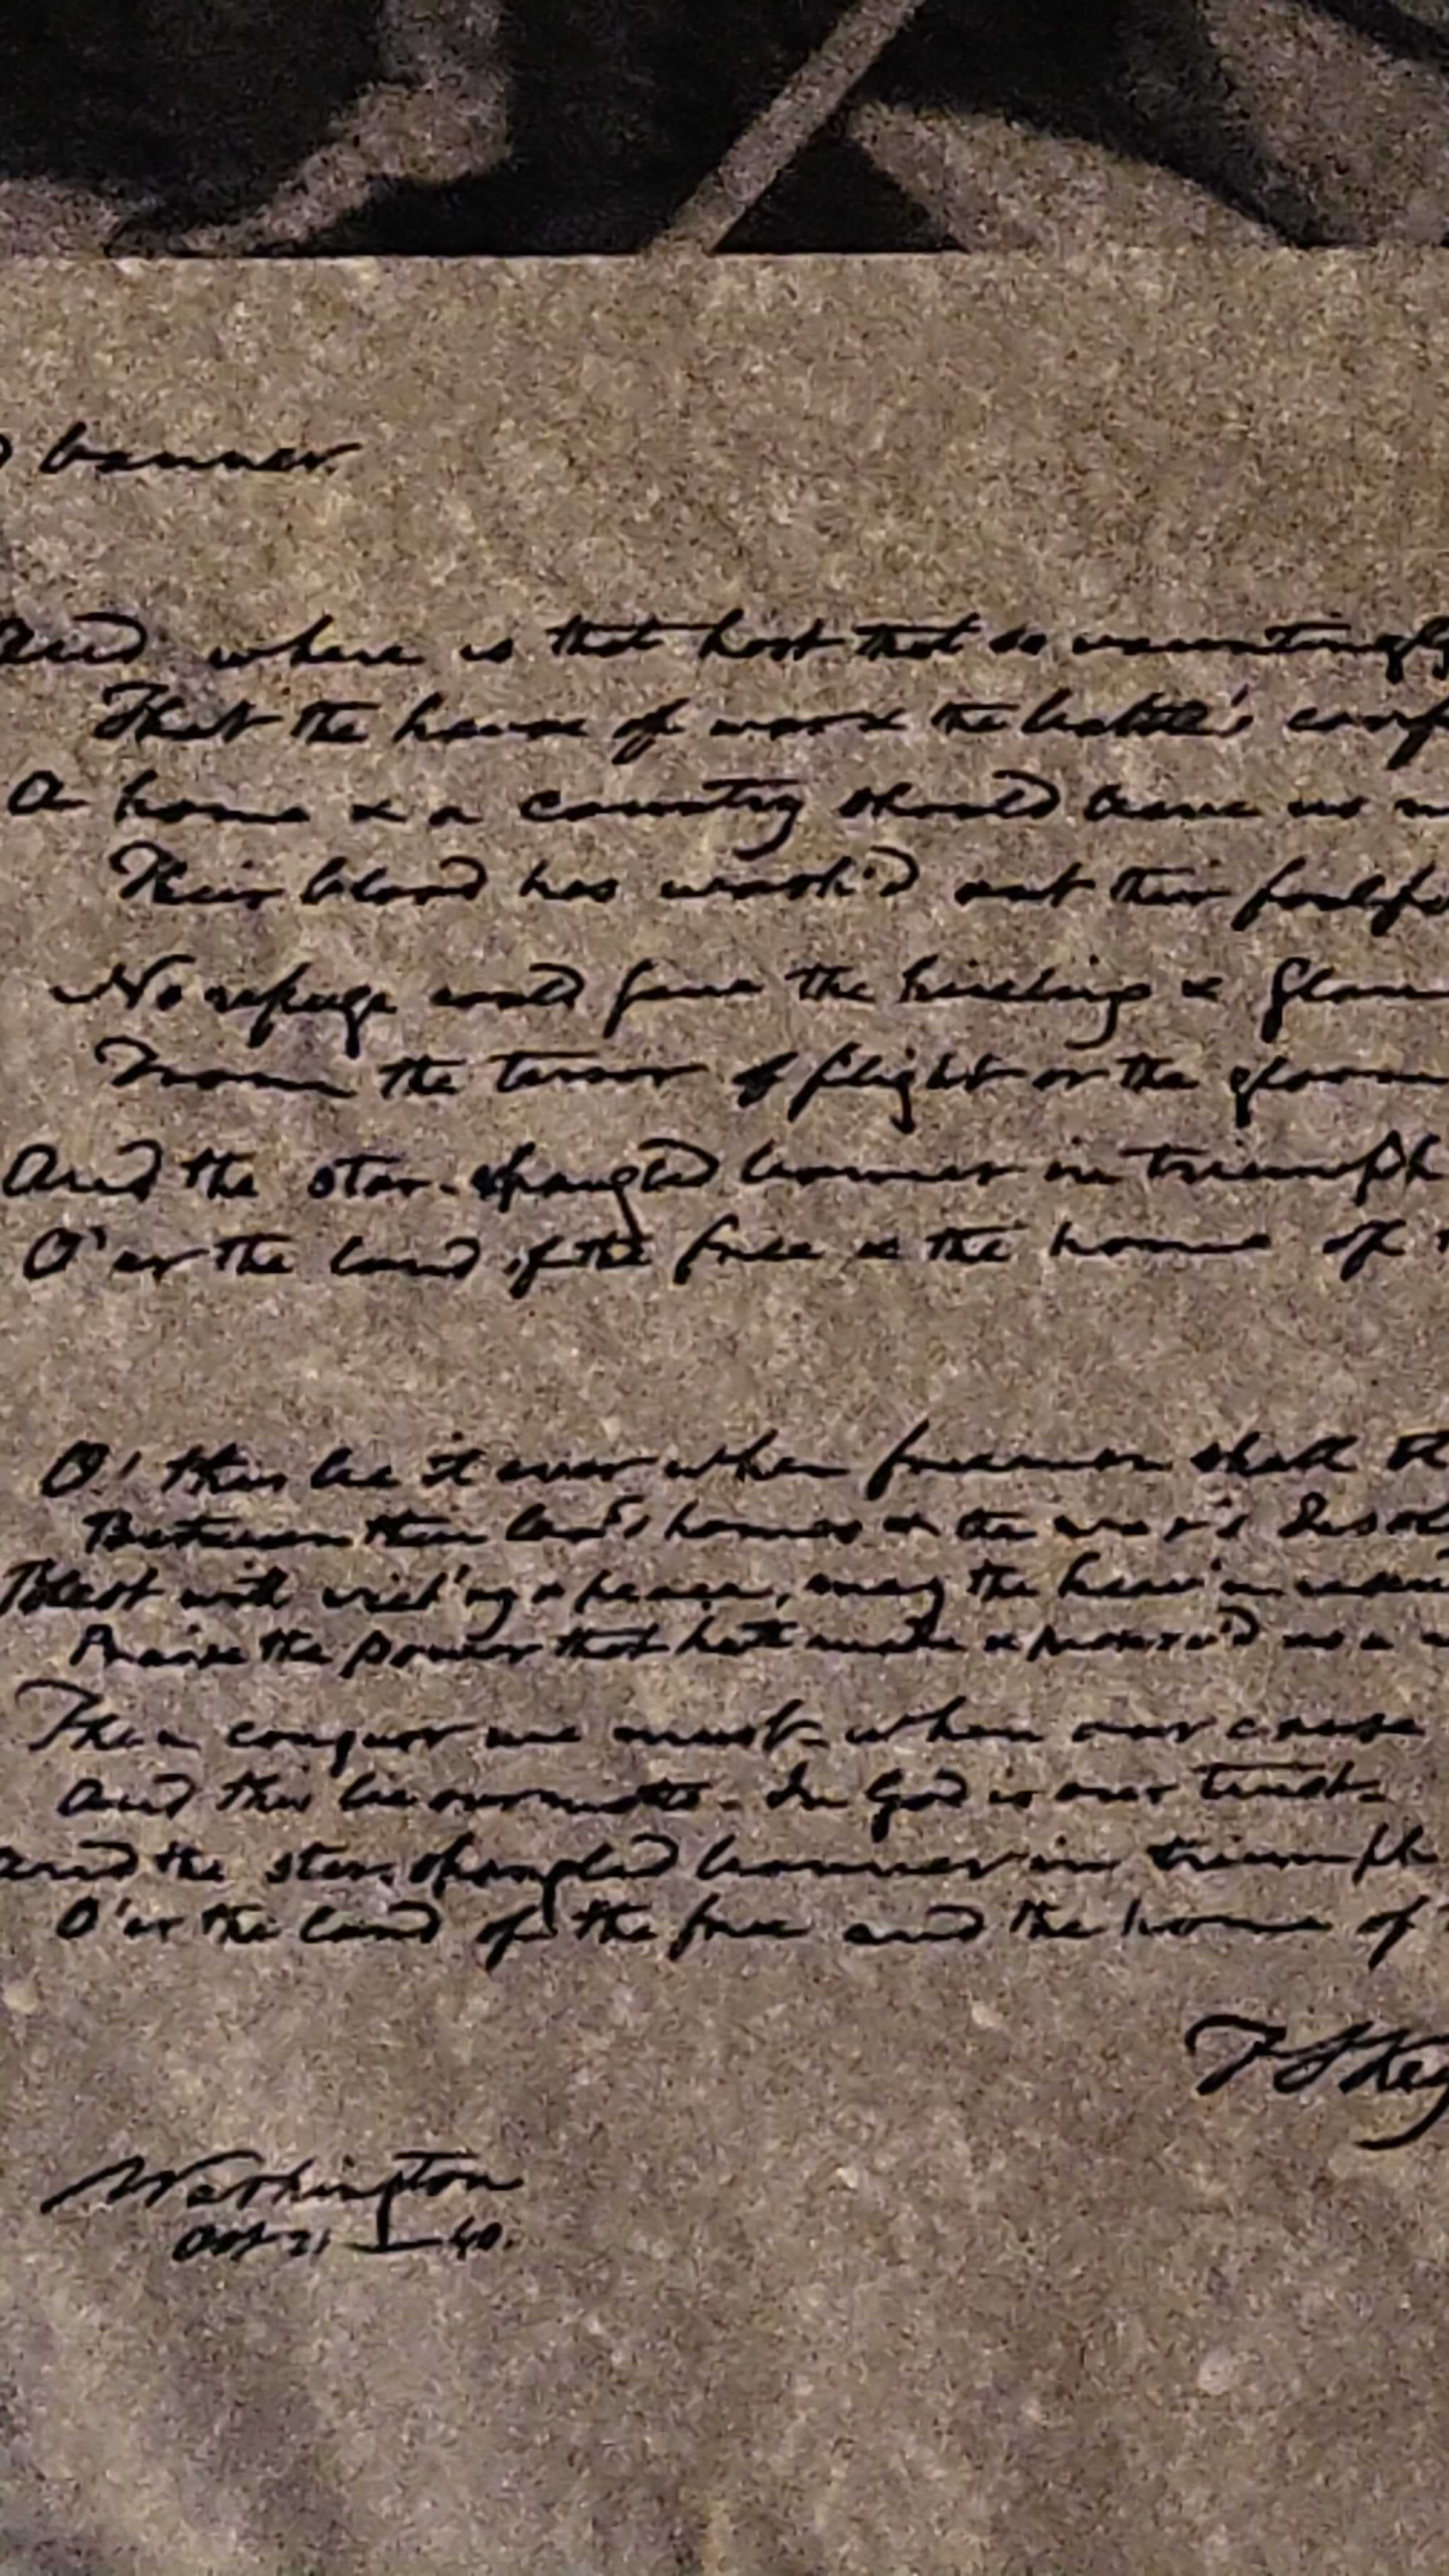 banner.
And where is that host that so vauntingly
That the havoc of war & the battle's conf
A home & a country should leave us n
Their blood has wash'd out their foul fo
No refuge could save the hireling & slave
From the terror of flight or the gloom
And the star-spangled banner in triumph
O'er the land of the free & the home of
O! thus be it ever when freemen shall st
Between their lov'd homes & the war's desol
Blest with vict'ry & peace, may the heav'n rescu
Praise the power that hath made & preserv'd us a
Then conquer we must - when our cause
And this be our motto - In God is our trust -
And the star-spangled banner in triumph
O'er the land of the free and the home of
F S Key
Washington
Oct 21 - 40.